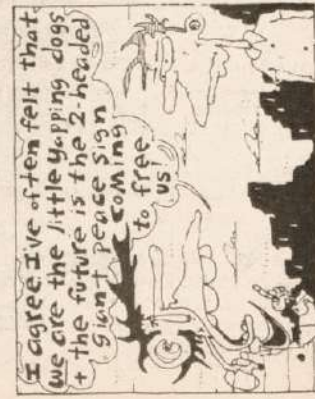 I agree. I've often felt that
we are the little yapping dogs
+ the future is the 2-headed
giant peace sign
coming
to free
us!